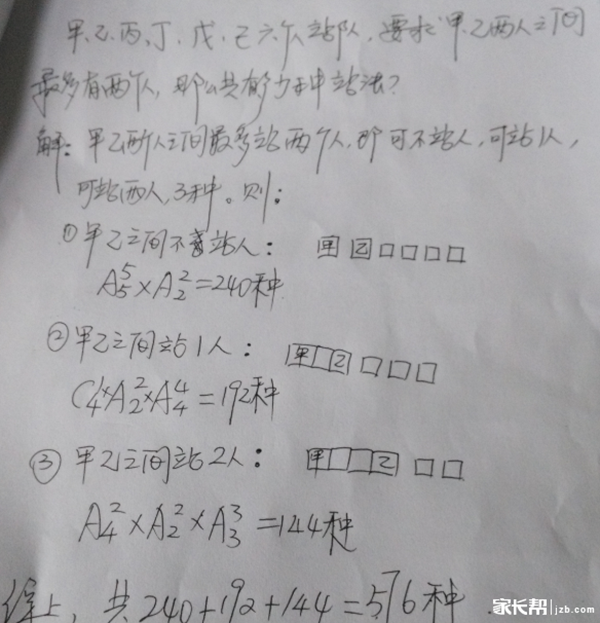 甲、乙、丙、丁、戊、己六个人站队，要求：甲乙两人之间
最多有两个人，那么共有多少种站法？
解：甲乙两个人之间最多站两个人，即可不站人，可站1人，
可站两人，3种。则：
① 甲乙之间不站人： 甲 乙 □ □ □ □
A₅⁵×A₂²=240种
② 甲乙之间站1人： 甲□乙 □ □ □
C₄¹×A₂²×A₄⁴=192种
③ 甲乙之间站2人： 甲□□乙 □ □
A₄²×A₂²×A₃³=144种
综上，共240+192+144=576种.
家长帮 jzb.com